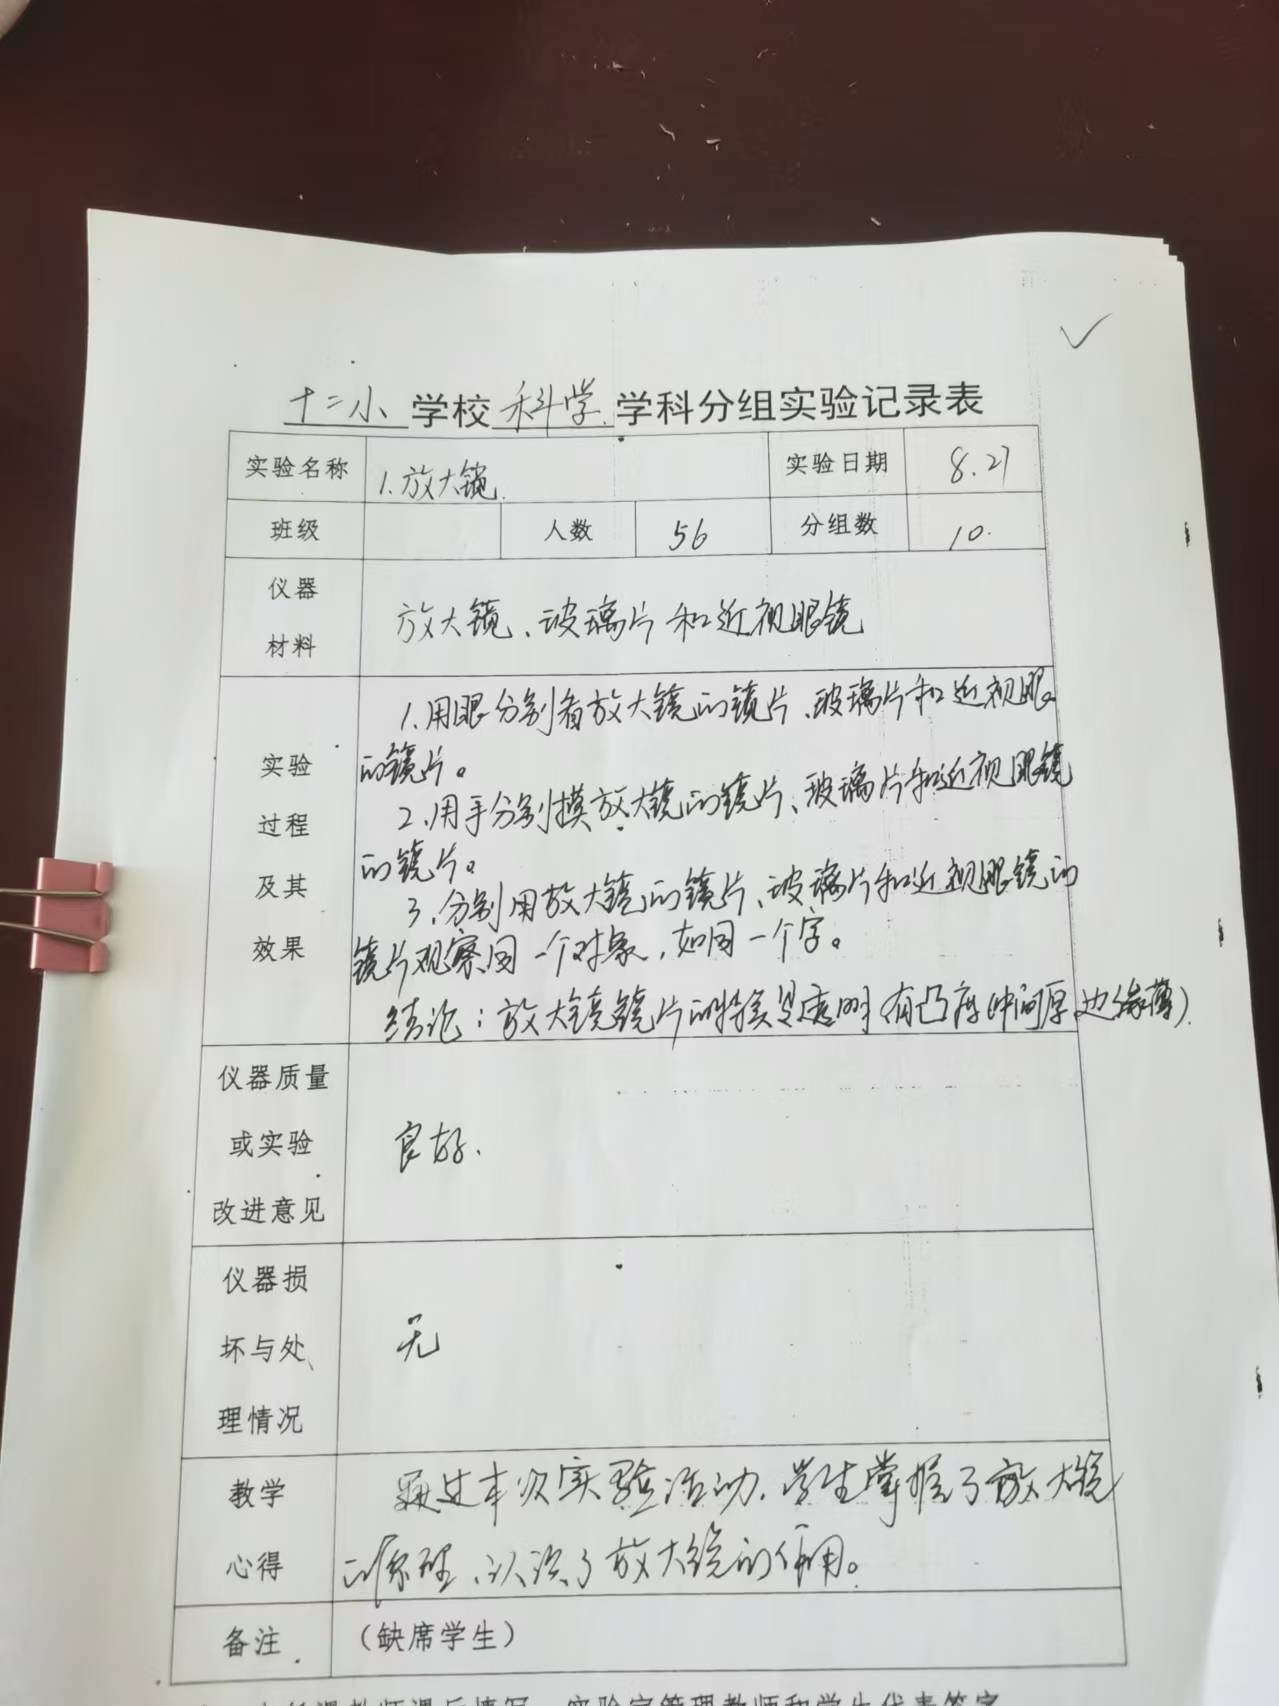 十二小 学校 科学 学科分组实验记录表
实验名称 1.放大镜. 实验日期 8.27
班级 人数 56 分组数 10.
仪器
材料
放大镜、玻璃片和近视眼镜
实验
过程
及其
效果
1.用眼分别看放大镜的镜片、玻璃片和近视眼
的镜片。
2.用手分别摸放大镜的镜片、玻璃片和近视眼镜
的镜片。
3.分别用放大镜的镜片、玻璃片和近视眼镜的
镜片观察同一个对象,如同一个字。
结论:放大镜镜片的特点是透明有凸度(中间厚边缘薄).
仪器质量
或实验
改进意见
良好.
仪器损
坏与处
理情况
无
教学
心得
通过本次实验活动、学生掌握了放大镜
的原理、认识了放大镜的作用。
备注 (缺席学生)
任课教师课后填写,实验室管理教师和学生代表签字